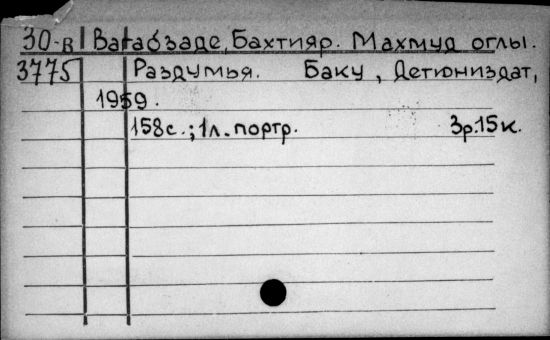 30-в Вагабзаде, Бахтияр. Махмуд оглы.
3775 Раздумья. Баку, Детюниздат,
1959.
158с.; 1л. портр. 3р.15к.